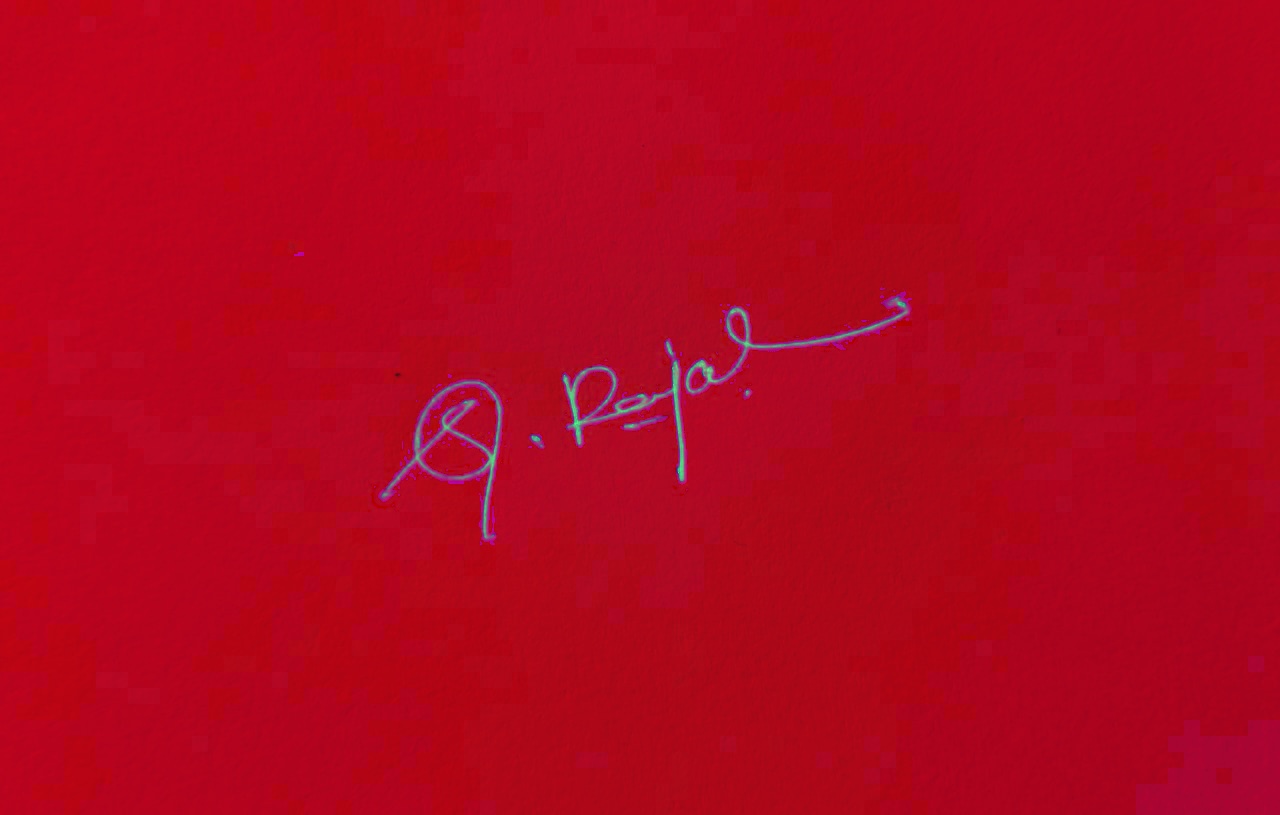 . Rajal